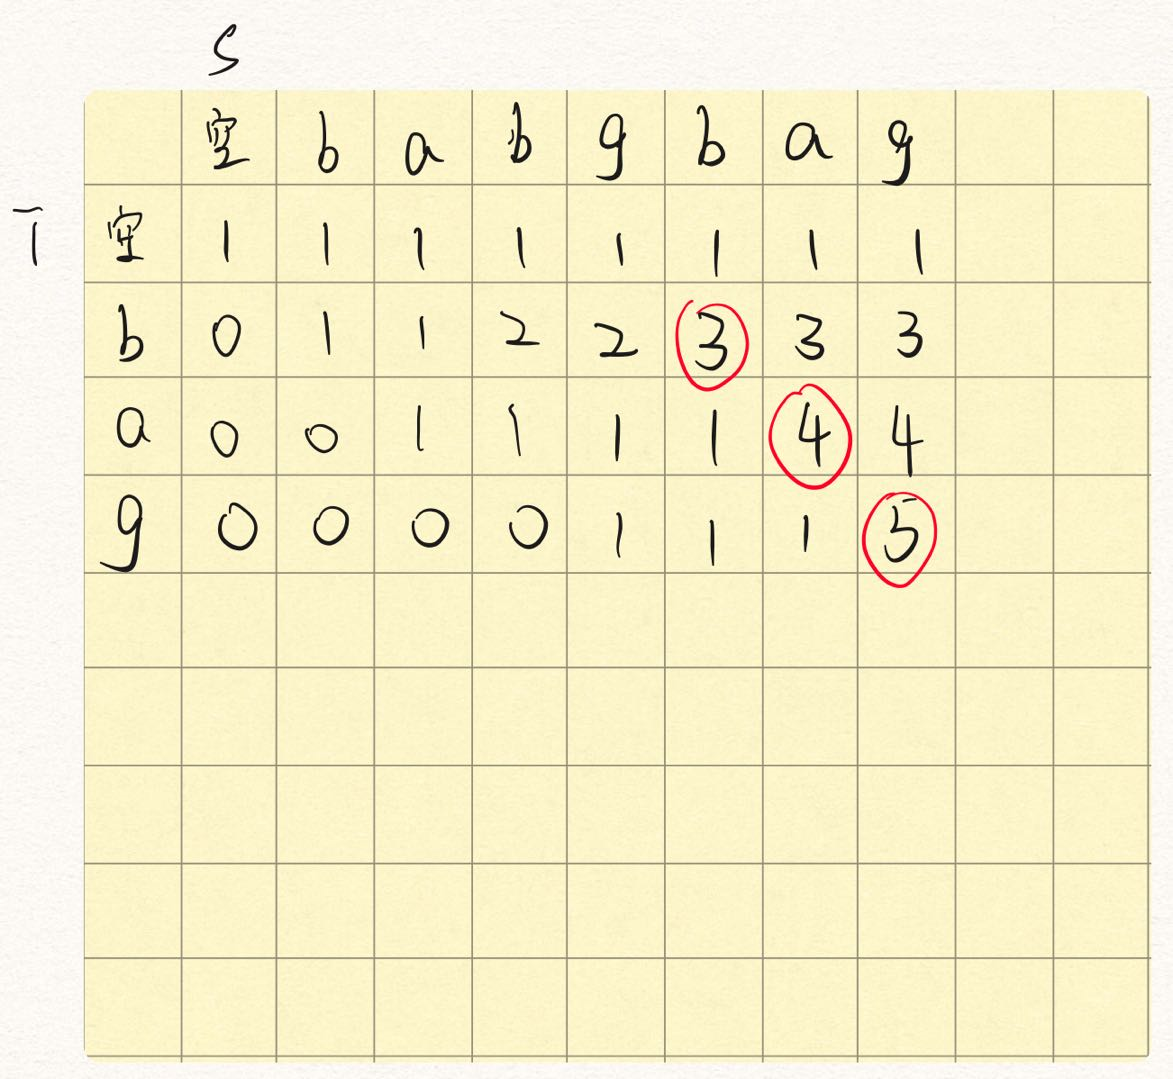 S
空 b a b g b a g
T 空 1 1 1 1 1 1 1 1
b 0 1 1 2 2 3 3 3
a 0 0 1 1 1 1 4 4
g 0 0 0 0 1 1 1 5